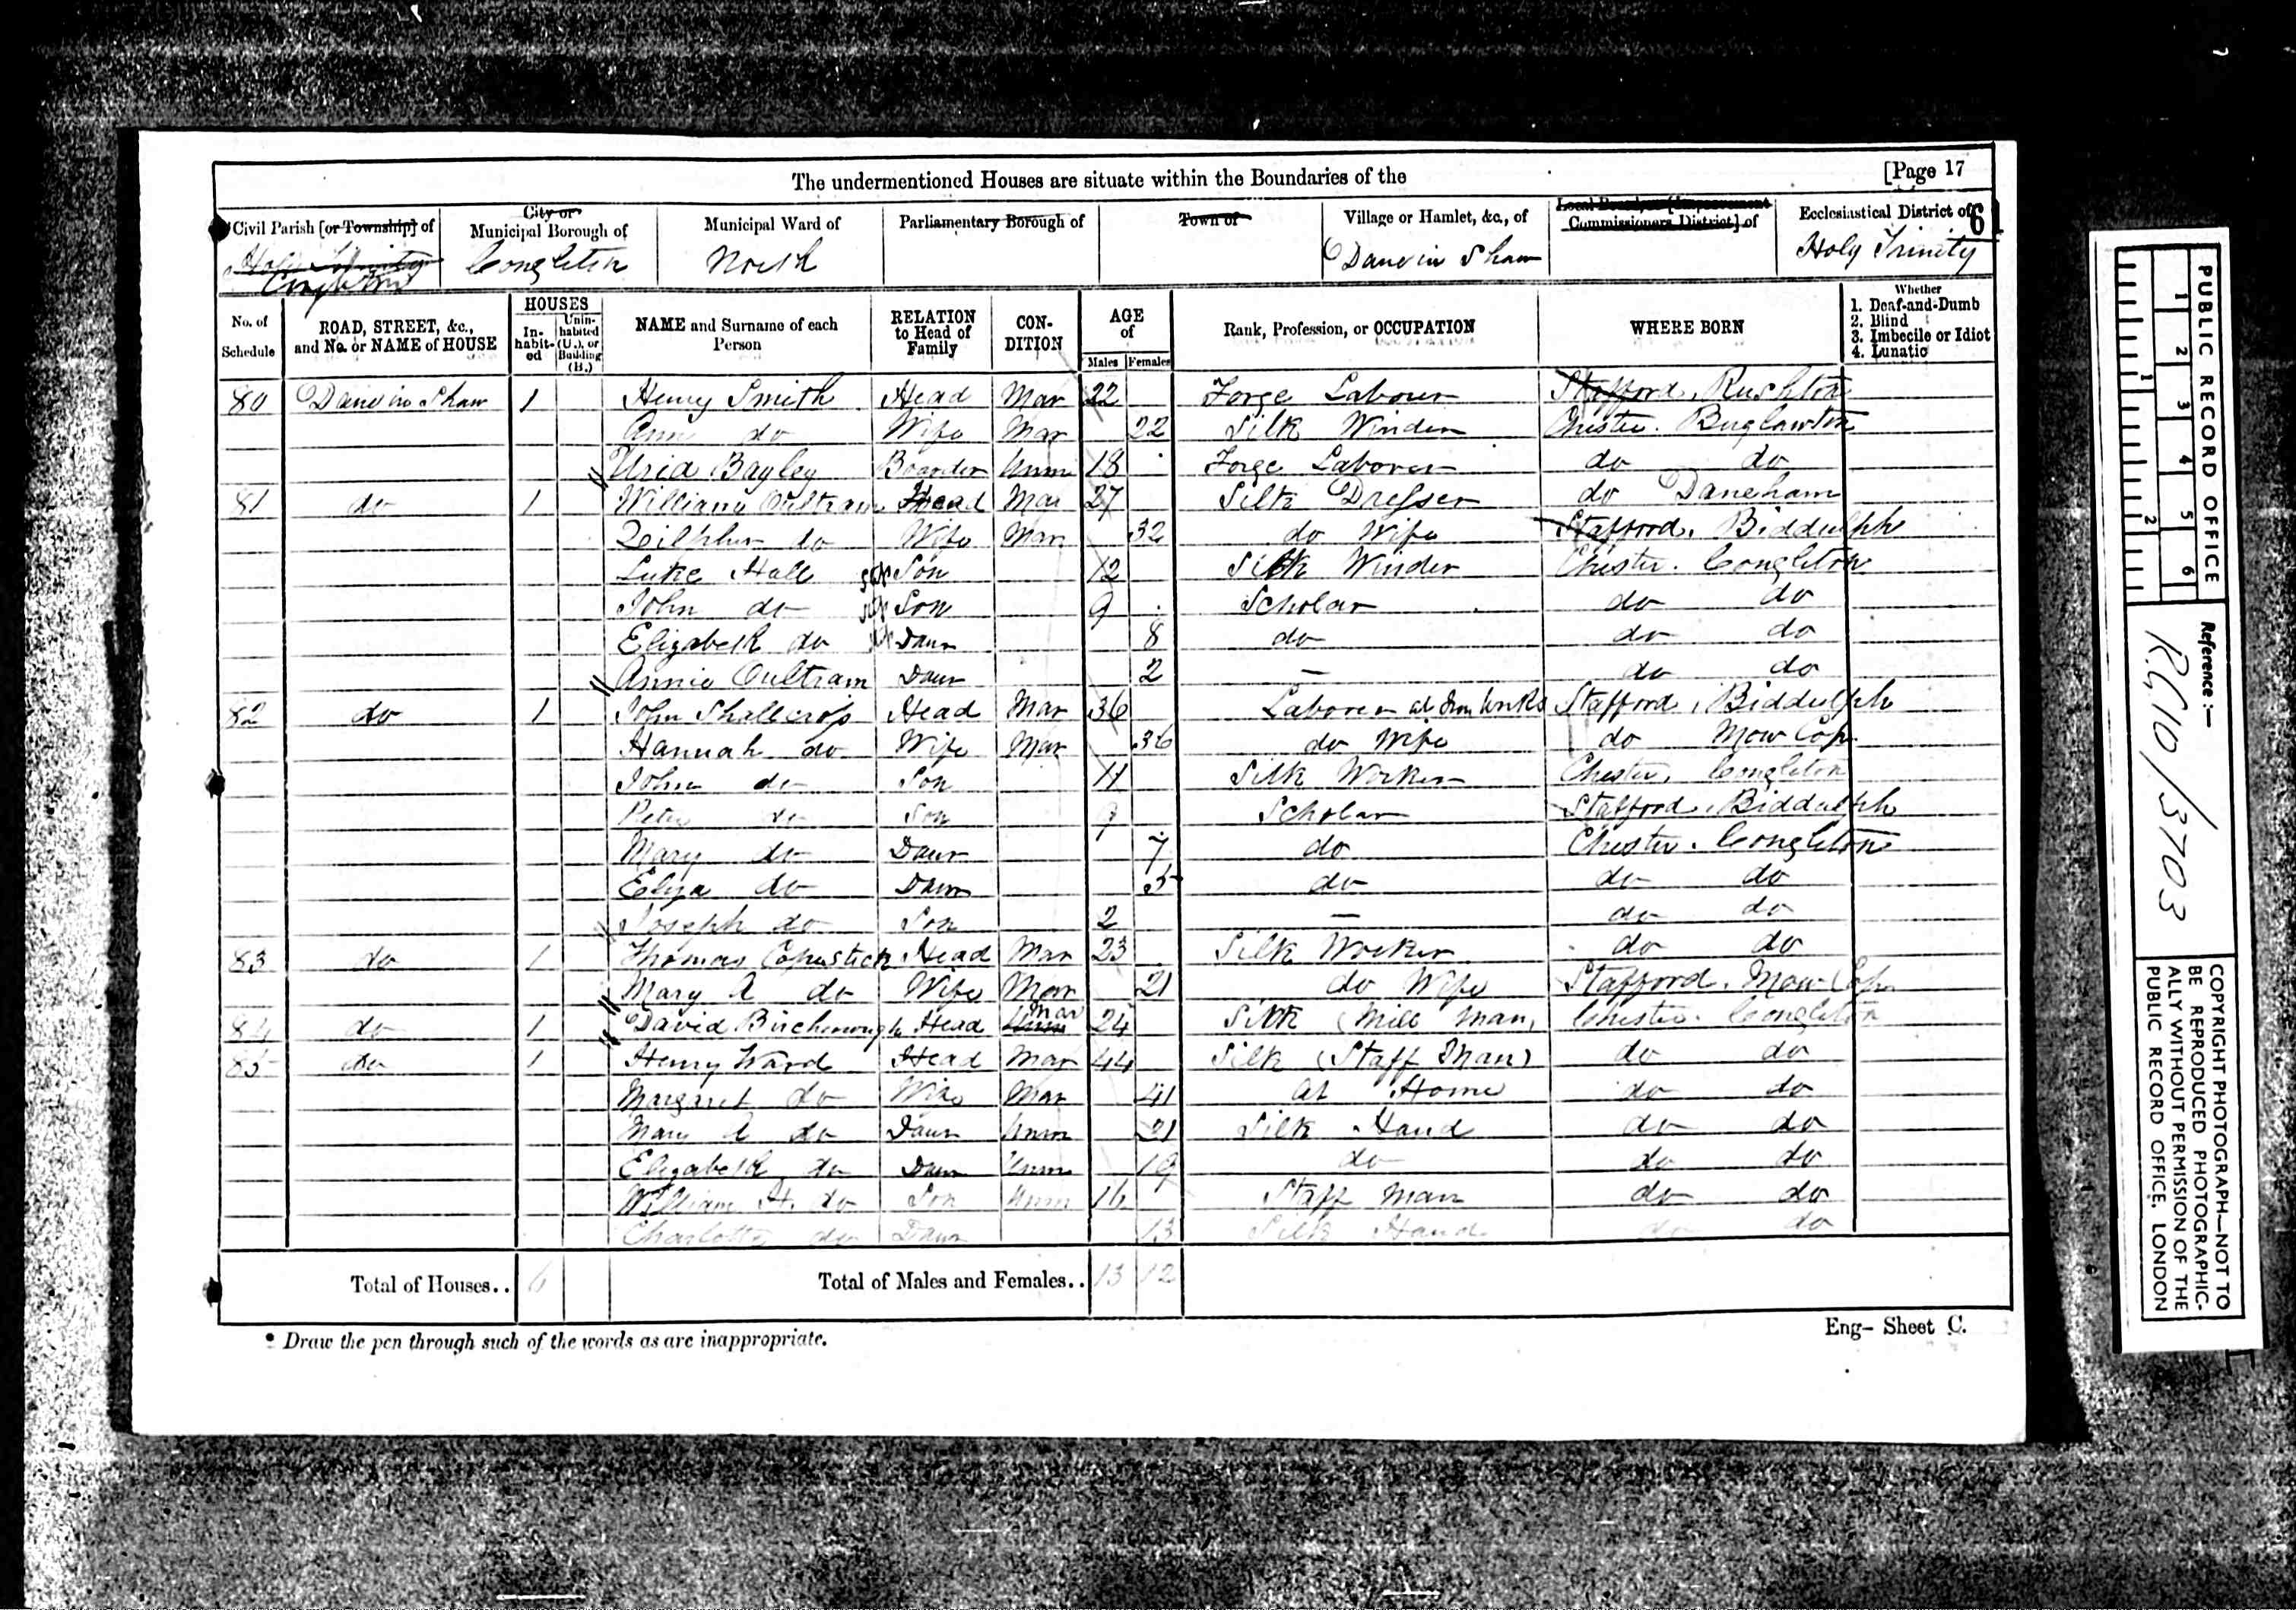 The undermentioned Houses are situate within the Boundaries of the [Page 17
Civil Parish [or Township] of City or Municipal Borough of Municipal Ward of Parliamentary Borough of Town of Village or Hamlet, &c., of Local Board, or [Improvement Commissioners District] of Ecclesiastical District of 61
Holy Trinity Congleton Congleton North Dane in Shaw Holy Trinity
No. of Schedule ROAD, STREET, &c., and No. or NAME of HOUSE HOUSES In-habit-ed Unin-habited (U.), or Building (B.) NAME and Surname of each Person RELATION to Head of Family CON-DITION AGE of Males Females Rank, Profession, or OCCUPATION WHERE BORN Whether 1. Deaf-and-Dumb 2. Blind 3. Imbecile or Idiot 4. Lunatic
80 Dane in Shaw 1 Henry Smith Head Mar 22 Forge Labourer Stafford, Rushton
Ann do Wife Mar 22 Silk Winder Chester. Buglawton
Uria Bayley Boarder Unm 18 Forge Laborer do do
81 do 1 William Oultram Head Mar 27 Silk Dresser do Daneham
Zilpher do Wife Mar 32 do Wife Stafford. Biddulph
Luke Hall step Son 12 Silk Winder Chester. Congleton
John do step Son 9 Scholar do do
Elizabeth do step Daur 8 do do do
Annie Oultram Daur 2 — do do
82 do 1 John Shallcross Head Mar 36 Laborer at Iron Works Stafford, Biddulph
Hannah do Wife Mar 36 do Wife do Mow Cop
John do Son 11 Silk Worker Chester, Congleton
Peter do Son 9 Scholar Stafford, Biddulph
Mary do Daur 7 do Chester. Congleton
Eliza do Daur 5 do do do
Joseph do Son 2 — do do
83 do 1 Thomas Copestick Head Mar 23 Silk Worker do do
Mary A do Wife Mar 21 do Wife Stafford. Mow Cop
84 do 1 David Birchenough Head Unm Mar 24 Silk (Mill Man) Chester. Congleton
85 do 1 Henry Ward Head Mar 44 Silk (Staff Man) do do
Margaret do Wife Mar 41 at Home do do
Mary A do Daur Unm 21 Silk Hand do do
Elizabeth do Daur Unm 19 do do do
William H. do Son Unm 16 Staff Man do do
Charlotte do Daur 13 Silk Hand do do
Total of Houses.. 6 Total of Males and Females.. 13 12
* Draw the pen through such of the words as are inappropriate.
Eng- Sheet C.
PUBLIC RECORD OFFICE
1 2 3 4 5 6
1 2
Reference :-
RG 10/3703
COPYRIGHT PHOTOGRAPH—NOT TO
BE REPRODUCED PHOTOGRAPHIC-
ALLY WITHOUT PERMISSION OF THE
PUBLIC RECORD OFFICE, LONDON